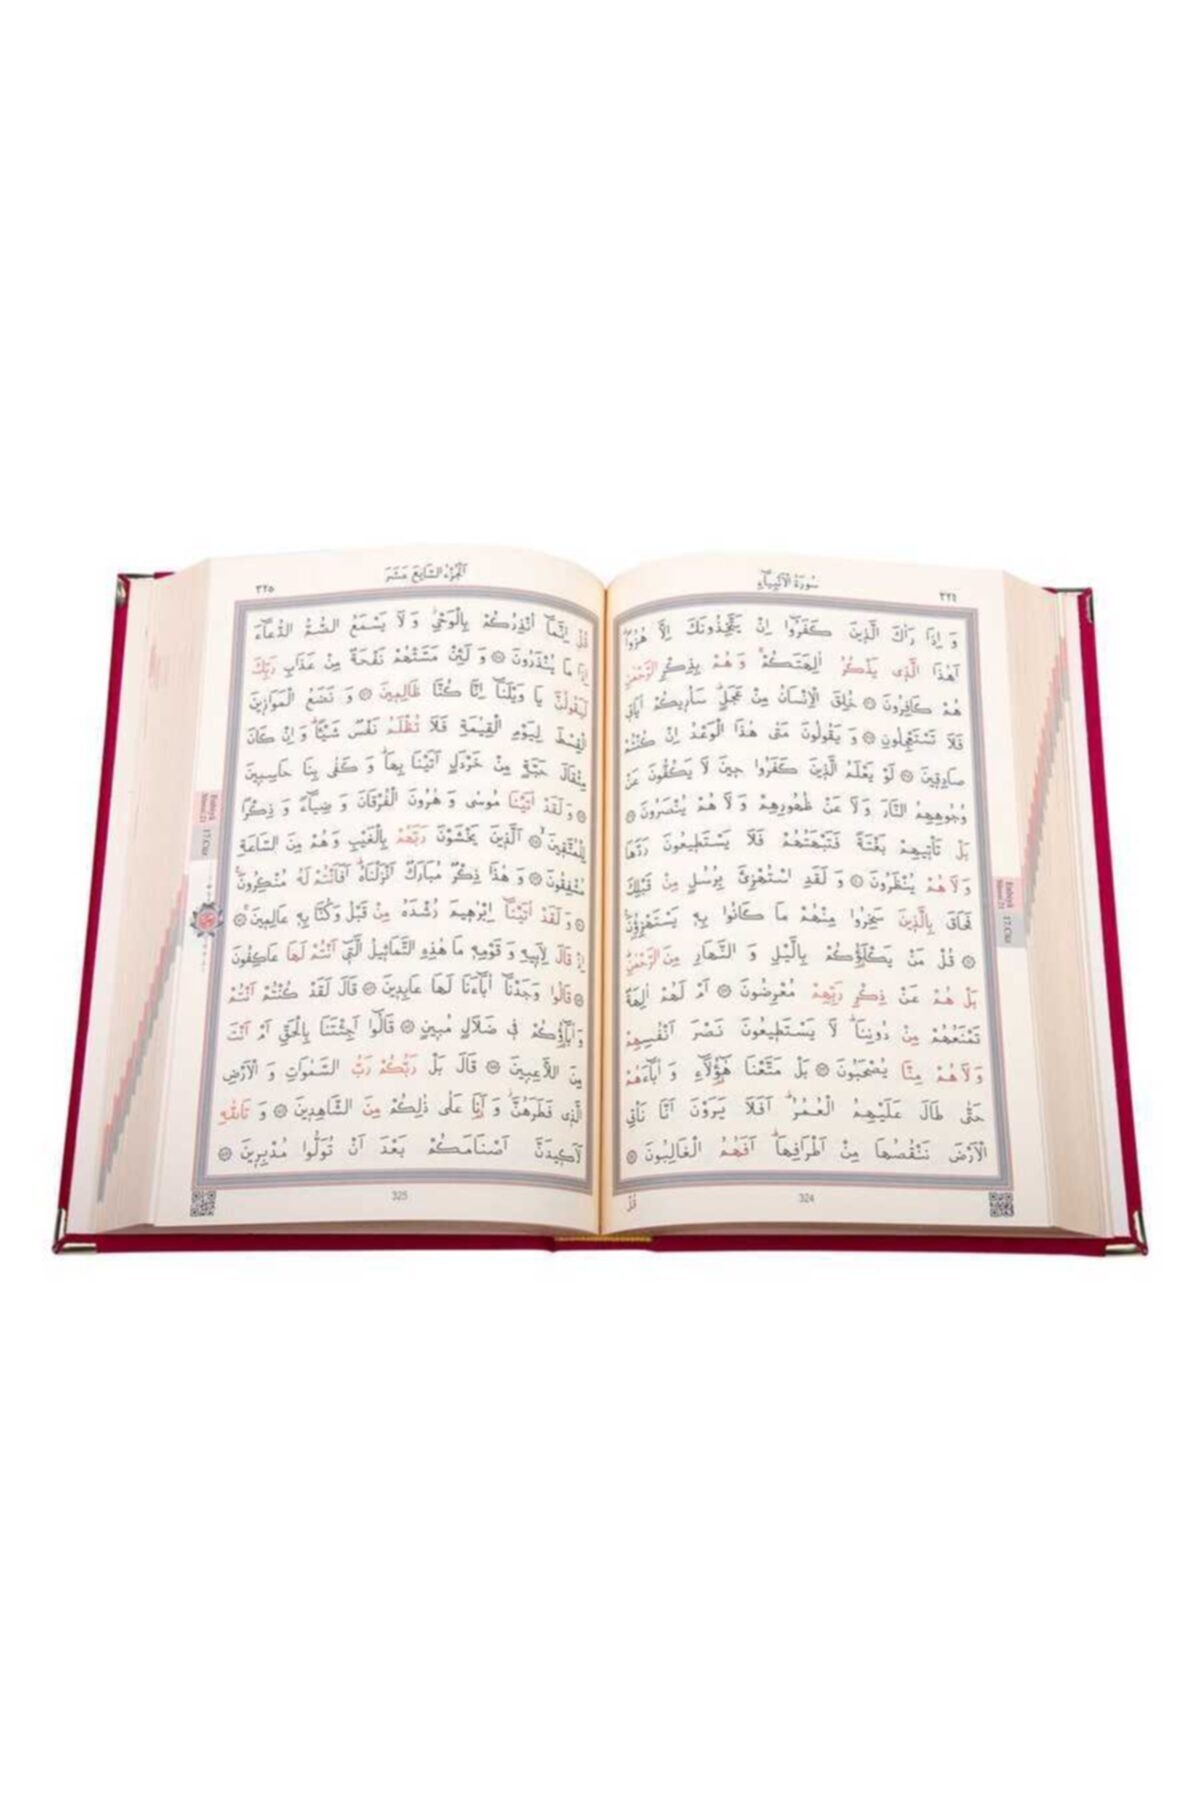 سُورَةُ الْاَنْبِيَاءِ
٣٢٤
وَ اِذَا رَاٰكَ الَّذِينَ كَفَرُٓوا اِنْ يَتَّخِذُونَكَ اِلَّا هُزُوًاۜ
اَهٰذَا الَّذِى يَذْكُرُ اٰلِهَتَكُمْۚ وَ هُمْ بِذِكْرِ الرَّحْمٰنِ
هُمْ كَافِرُونَ خُلِقَ الْاِنْسَانُ مِنْ عَجَلٍۜ سَاُرِيكُمْ اٰيَاتِى
فَلَا تَسْتَعْجِلُونِ وَ يَقُولُونَ مَتٰى هٰذَا الْوَعْدُ اِنْ كُنْتُمْ
صَادِقِينَ لَوْ يَعْلَمُ الَّذِينَ كَفَرُوا حِينَ لَا يَكُفُّونَ عَنْ
وُجُوهِهِمُ النَّارَ وَ لَا عَنْ ظُهُورِهِمْ وَ لَا هُمْ يُنْصَرُونَ
بَلْ تَأْتِيهِمْ بَغْتَةً فَتَبْهَتُهُمْ فَلَا يَسْتَطِيعُونَ رَدَّهَا
وَ لَا هُمْ يُنْظَرُونَ وَ لَقَدِ اسْتُهْزِئَ بِرُسُلٍ مِنْ قَبْلِكَ
فَحَاقَ بِالَّذِينَ سَخِرُوا مِنْهُمْ مَا كَانُوا بِهِ يَسْتَهْزِؤُنَ
قُلْ مَنْ يَكْلَؤُكُمْ بِالَّيْلِ وَ النَّهَارِ مِنَ الرَّحْمٰنِۜ
بَلْ هُمْ عَنْ ذِكْرِ رَبِّهِمْ مُعْرِضُونَ اَمْ لَهُمْ اٰلِهَةٌ
تَمْنَعُهُمْ مِنْ دُونِنَاۜ لَا يَسْتَطِيعُونَ نَصْرَ اَنْفُسِهِمْ
وَ لَا هُمْ مِنَّا يُصْحَبُونَ بَلْ مَتَّعْنَا هٰٓؤُلَٓاءِ وَ اٰبَٓاءَهُمْ
حَتّٰى طَالَ عَلَيْهِمُ الْعُمُرُۜ اَفَلَا يَرَوْنَ اَنَّا نَأْتِى
الْاَرْضَ نَنْقُصُهَا مِنْ اَطْرَافِهَاۜ اَفَهُمُ الْغَالِبُونَ
قُلْ
324
Enbiyâ
Sûresi:21
17.Cüz
اَلْجُزْءُ السَّابِعَ عَشَرَ
٣٢٥
قُلْ اِنَّمَٓا اُنْذِرُكُمْ بِالْوَحْىِۘ وَ لَا يَسْمَعُ الصُّمُّ الدُّعَٓاءَ
اِذَا مَا يُنْذَرُونَ وَ لَئِنْ مَسَّتْهُمْ نَفْحَةٌ مِنْ عَذَابِ رَبِّكَ
لَيَقُولُنَّ يَا وَيْلَنَٓا اِنَّا كُنَّا ظَالِمِينَ وَ نَضَعُ الْمَوَازِينَ
الْقِسْطَ لِيَوْمِ الْقِيٰمَةِ فَلَا تُظْلَمُ نَفْسٌ شَيْئًاۜ وَ اِنْ كَانَ
مِثْقَالَ حَبَّةٍ مِنْ خَرْدَلٍ اَتَيْنَا بِهَاۜ وَ كَفٰى بِنَا حَاسِبِينَ
وَ لَقَدْ اٰتَيْنَا مُوسٰى وَ هٰرُونَ الْفُرْقَانَ وَ ضِيَٓاءً وَ ذِكْرًا
لِلْمُتَّقِينَ اَلَّذِينَ يَخْشَوْنَ رَبَّهُمْ بِالْغَيْبِ وَ هُمْ مِنَ السَّاعَةِ
مُشْفِقُونَ وَ هٰذَا ذِكْرٌ مُبَارَكٌ اَنْزَلْنَاهُۜ اَفَاَنْتُمْ لَهُ مُنْكِرُونَ
وَ لَقَدْ اٰتَيْنَٓا اِبْرٰهِيمَ رُشْدَهُ مِنْ قَبْلُ وَ كُنَّا بِهِ عَالِمِينَ
اِذْ قَالَ لِاَبِيهِ وَ قَوْمِهِ مَا هٰذِهِ التَّمَاثِيلُ الَّتِٓى اَنْتُمْ لَهَا عَاكِفُونَ
قَالُوا وَجَدْنَٓا اٰبَٓاءَنَا لَهَا عَابِدِينَ قَالَ لَقَدْ كُنْتُمْ اَنْتُمْ
وَ اٰبَٓاؤُكُمْ فِى ضَلَالٍ مُبِينٍ قَالُٓوا اَجِئْتَنَا بِالْحَقِّ اَمْ اَنْتَ
مِنَ اللَّاعِبِينَ قَالَ بَلْ رَبُّكُمْ رَبُّ السَّمٰوَاتِ وَ الْاَرْضِ
الَّذِى فَطَرَهُنَّۘ وَ اَنَا عَلٰى ذٰلِكُمْ مِنَ الشَّاهِدِينَ وَ تَاللّٰهِ
لَاَكِيدَنَّ اَصْنَامَكُمْ بَعْدَ اَنْ تُوَلُّوا مُدْبِرِينَ
325
Enbiyâ
Sûresi:21
17.Cüz